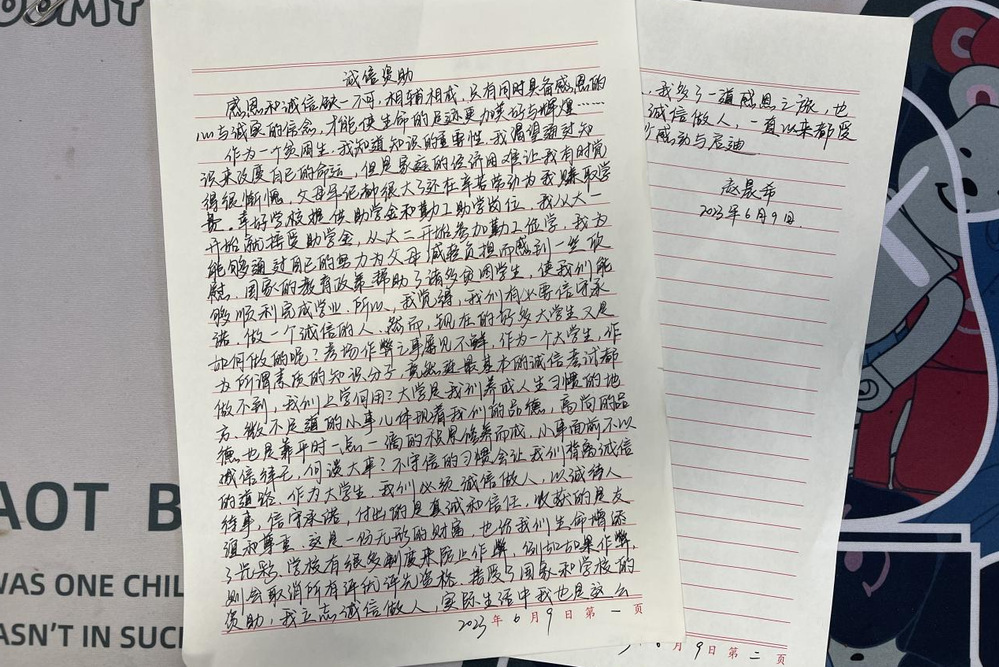 OOMY
诚信资助
感恩和诚信缺一不可，相辅相成，只有同时具备感恩的
心与诚实的信念，才能使生命的足迹更加美好与辉煌……
作为一个贫困生，我知道知识的重要性，我渴望通过知
识来改变自己的命运，但是家庭的经济困难让我有时觉
得很惭愧，父母年纪都很大了还在辛苦劳动为我赚取学
费。幸好学校提供助学金和勤工助学岗位，我从大一
开始就接受助学金，从大二开始参加勤工俭学，我为
能够通过自己的努力为父母减轻负担而感到一丝欣
慰，国家的教育政策帮助了诸多贫困学生，使我们能
够顺利完成学业，所以，我觉得，我们有必要信守承
诺，做一个诚信的人，然而，现在的好多大学生又是
如何做的呢？考场作弊之事屡见不鲜，作为一个大学生，作
为所谓素质的知识分子，竟然连最基本的诚信考试都
做不到，我们上学何用？大学是我们养成人生习惯的地
方，微不足道的小事儿体现着我们的品德，高尚的品
德也是靠平时一点一滴的积累修养而成，小事面前不以
诚信待之，何谈大事？不守信的习惯会让我们背离诚信
的道路，作为大学生，我们必须诚信做人，以诚待人
待事，信守承诺，付出的是真诚和信任，收获的是友
谊和尊重，这是一份无形的财富，也给我们生命增添
了光彩，学校有很多制度来防止作弊，例如如果作弊，
则会取消所有评优评先资格，接受了国家和学校的
资助，我立志诚信做人，实际生活中我也是这么
2023年6月9日第一页
，我多了一道感恩之旅，也
诚信做人，一直以来都受
感动与启迪
赵晟希
2023年6月9日
6月9日第二页
AOT B
WAS ONE CHIL
ASN'T IN SUCH